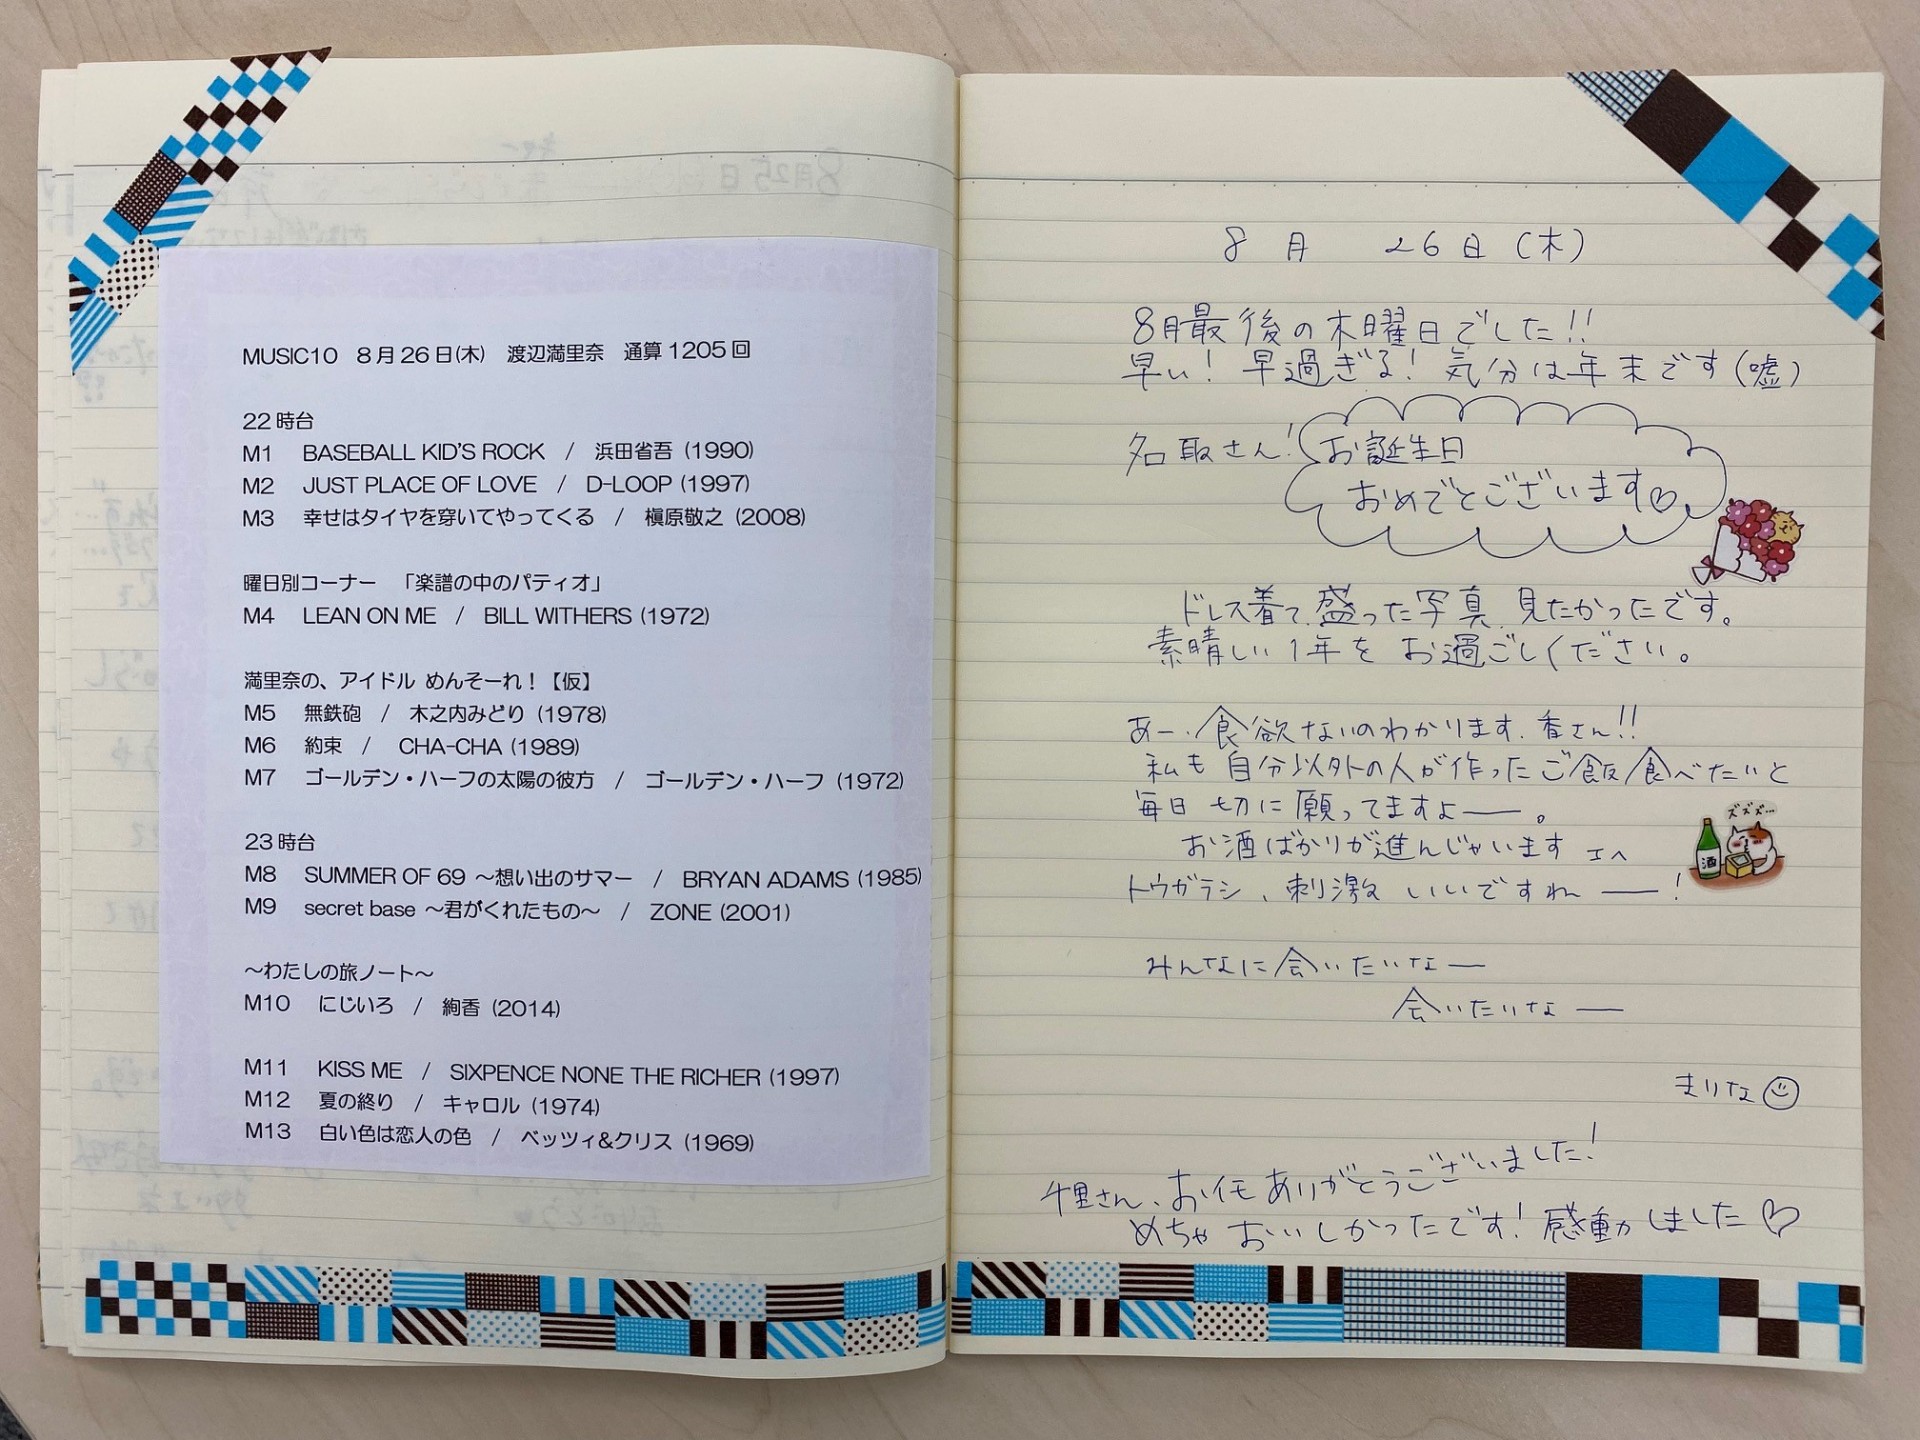 MUSIC10 8月26日(木) 渡辺満里奈 通算1205回
22時台
M1 BASEBALL KID'S ROCK / 浜田省吾 (1990)
M2 JUST PLACE OF LOVE / D-LOOP (1997)
M3 幸せはタイヤを穿いてやってくる / 槇原敬之 (2008)
曜日別コーナー 「楽譜の中のパティオ」
M4 LEAN ON ME / BILL WITHERS (1972)
満里奈の、アイドル めんそーれ！【仮】
M5 無鉄砲 / 木之内みどり (1978)
M6 約束 / CHA-CHA (1989)
M7 ゴールデン・ハーフの太陽の彼方 / ゴールデン・ハーフ (1972)
23時台
M8 SUMMER OF 69 ～想い出のサマー / BRYAN ADAMS (1985)
M9 secret base ～君がくれたもの～ / ZONE (2001)
～わたしの旅ノート～
M10 にじいろ / 絢香 (2014)
M11 KISS ME / SIXPENCE NONE THE RICHER (1997)
M12 夏の終り / キャロル (1974)
M13 白い色は恋人の色 / ベッツィ&クリス (1969)
8月 26日(木)
8月最後の木曜日でした!!
早い! 早過ぎる! 気分は年末です(嘘)
名取さん! お誕生日
おめでとございます♡
ドレス着て、盛った写真、見たかったです。
素晴しい1年をお過ごしください。
あー、食欲ないのわかります、香さん!!
私も自分以外の人が作ったご飯食べたいと
毎日切に願ってますよ――。
お酒ばかりが進んじゃいます エヘ
ズズズ…
酒
トウガラシ、刺激いいですね――!
みんなに会いたいなー
会いたいなー
まりな
千里さん、お仕モありがとうございました!
めちゃおいしかったです! 感動しました♡
8月25日